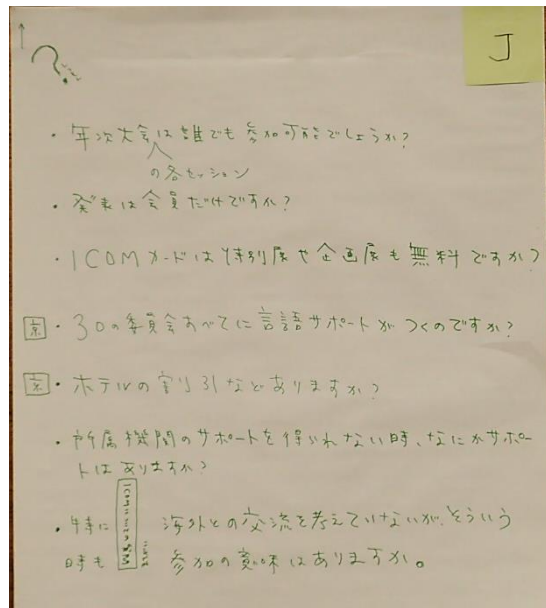 ↑
?
J
・年次大会は誰でも参加可能でしょうか?
の各セッション
・発表は会員だけですか?
・ICOMカードは特別展や企画展も無料ですか?
京・30の委員会すべてに言語サポートがつくのですか?
京・ホテルの割り引などありますか?
・所属機関のサポートを得られない時、なにかサポー
トはありますか?
・特に 海外との交流を考えていないが、そういう
時も 参加の意味はありますか。